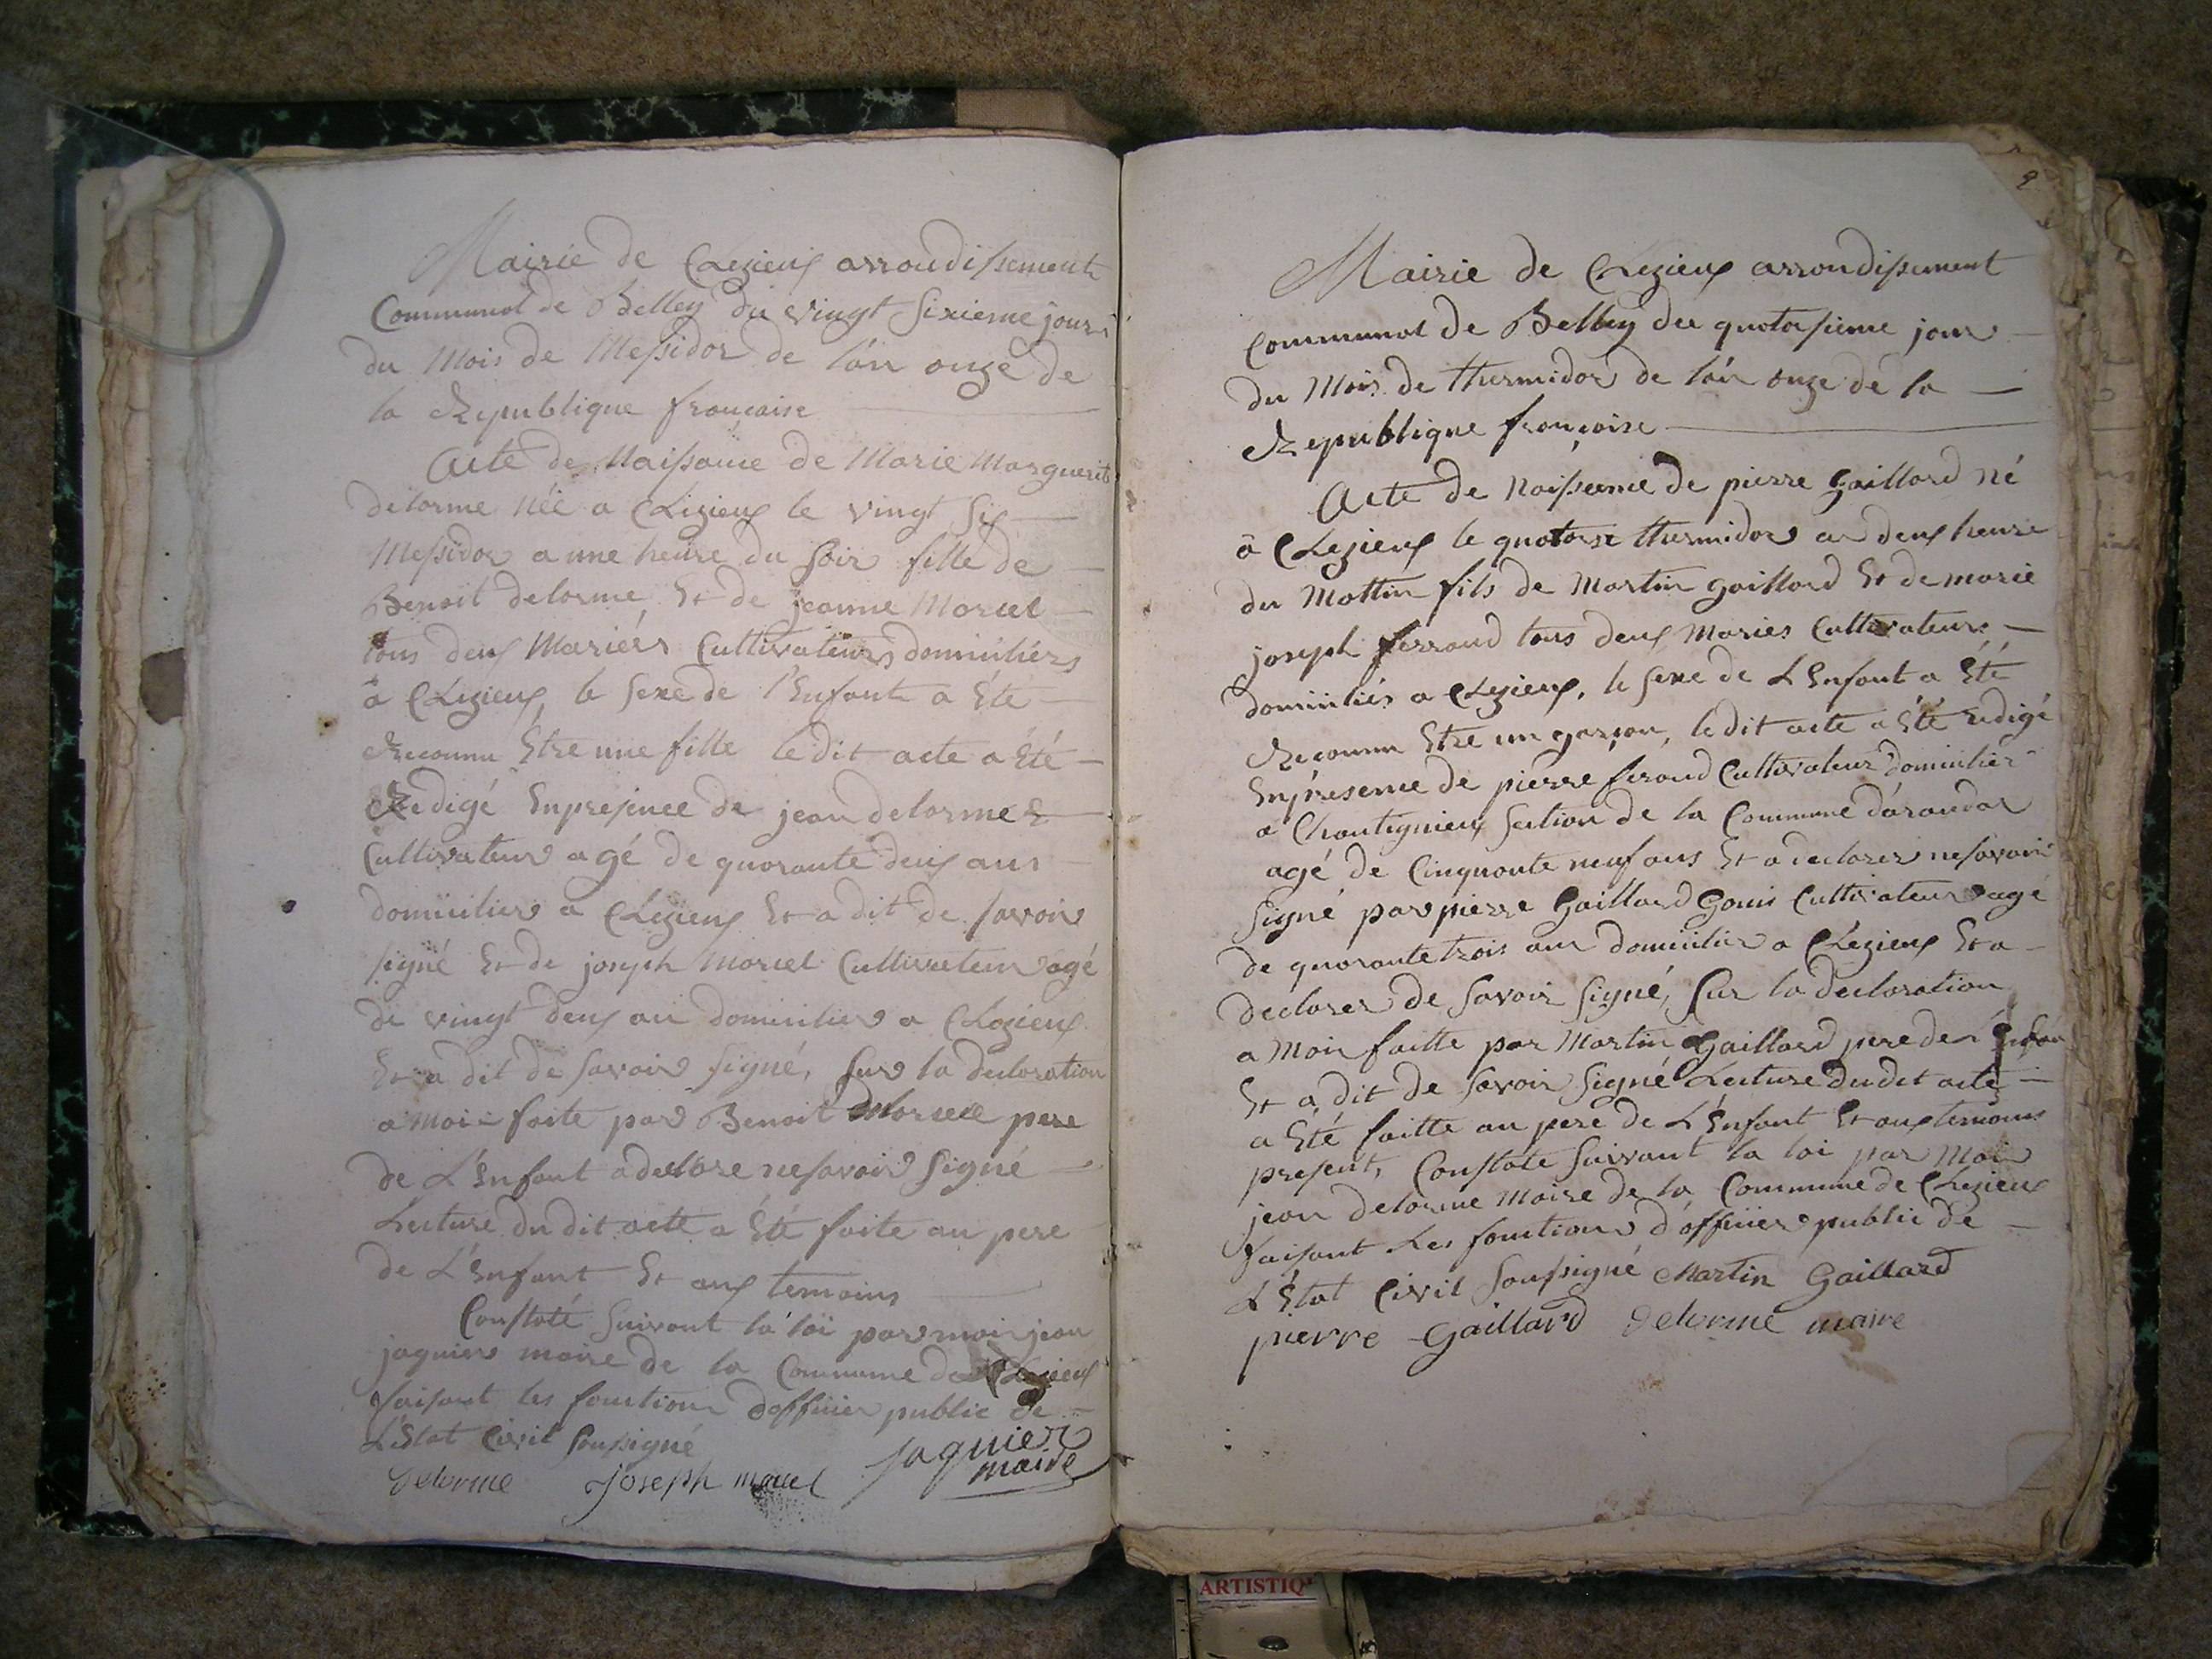 Mairie de Clezieux arrondissement
Communal de Belley du vingt sixieme jour
du Mois de Messidor de l'an onze de
la Republique francaise
Acte de Naissance de Marie Marguerite
delorme née a Clezieux le vingt six
Messidor a une heure du soir fille de
Benoit delorme Et de jeanne Morcel
tous deux Mariérs Cultivateurs domiciliérs
a Clezieux, le sexe de l'Enfant a Eté
Reconnu Etre une fille le dit acte a Eté
Redigé Enpresence de jean delorme
Cultivateur agé de quarante deux ans
domicilier a Clezieux Et a dit de savoir
signé Et de joseph Morcel Cultivateur agé
de vingt deux an domicilier a Clezieux
Et a dit de savoir signé, sur la declaration
a Moi faite par Benoit pere
de L'Enfant a declare nesavoir signé
Lecture du dit acte a Eté faite au pere
de L'Enfant Et aux temoins
Constaté suivant la loi par moi jean
jaquier maire de la Commune de Clezieux
faisant les fonctions dofficier public de
L'Etat Civil soussigné
delorme joseph morcel jaquier
maire
9
Mairie de Clezieux arrondissement
Communal de Belley du quatorsieme jour
du Mois de thermidor de l'an onze de la
Republique françoise
Acte de Naissance de pierre Gaillard né
a Clezieux le quatorse thermidor a deux heure
du Mattin fils de Martin gaillard Et de marie
joseph ferraud tous deux Mariés Cultivateurs
domiciliés a Clezieux, le sexe de L'Enfant a Eté
Reconnu Etre un garçon, le dit acte a Eté redigé
Enpresence de pierre feraud Cultivateur domicilier
a Chantignieux section de la Commune d'arandas
agé de Cinquante neuf ans Et a declarer nesavoir
signé par pierre Gaillard Cultivateur agé
de quarante trois ans domicilier a Clezieux Et a
declarer de savoir signé, sur la declaration
a Moi faitte par Martin Gaillard pere de l'Enfan
Et a dit de savoir signé Lecture du dit acte
a Eté faitte au pere de L'Enfant Et aux temoins
present, Constaté suivant la loi par Moi
jean delorme Maire de la Commune de Clezieux
faisant Les fonctions d'officier public de
L'Etat Civil soussigné Martin Gaillard
pierre Gaillard delorme maire
ARTISTIQ